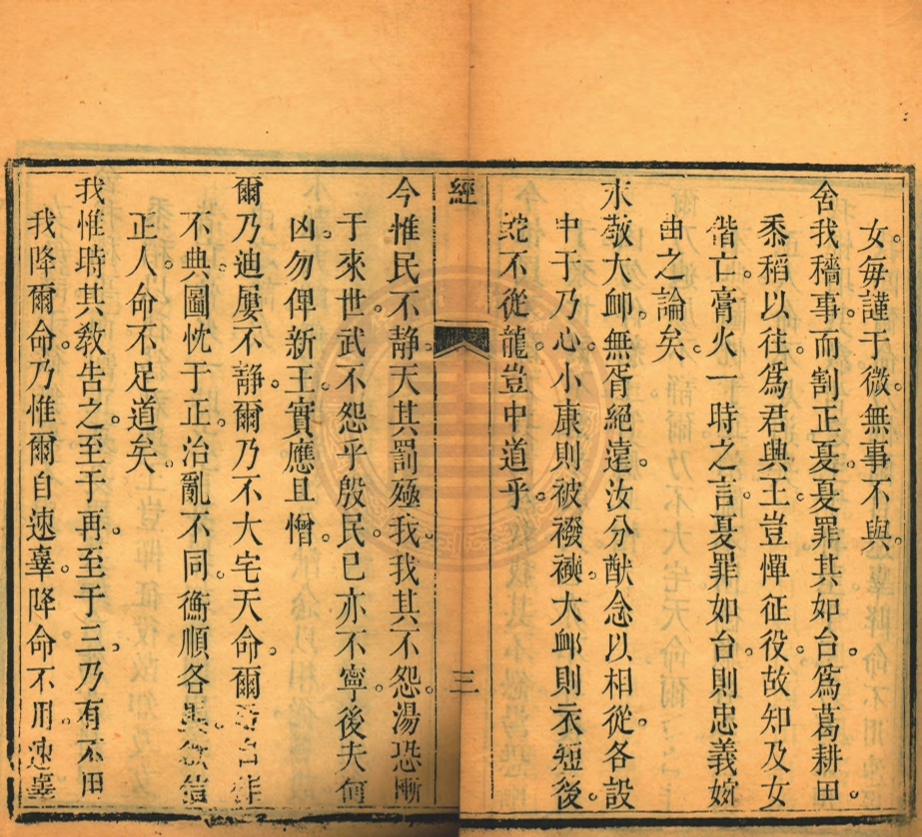 女每謹于微。無事不與。
舍我穡事。而割正夏。夏罪其如台。爲葛耕田。
黍稻以往。爲君與王。豈憚征役。故知及女
偕亡。膏火一時之言。夏罪如台。則忠義婉
曲之論矣。
永敬大卹。無胥絕遠。汝分猷念以相從。各設
中于乃心。小康則被襏襫。大卹則衣短後。
蛇不從龍。豈中道乎。
經
三
今惟民不靜。天其罰殛我。我其不怨。湯恐慚
于來世。武不怨乎殷民。已亦不寧。後夫何
凶。勿俾新王。實應且憎。
爾乃迪屢不靜。爾乃不大宅天命。爾
不典。圖忱于正。治亂不同。衡順各
正人。命不足道矣。
我惟時其教告之。至于再。至于三。乃有不用
我降爾命。乃惟爾自速辜。降命不用。速辜